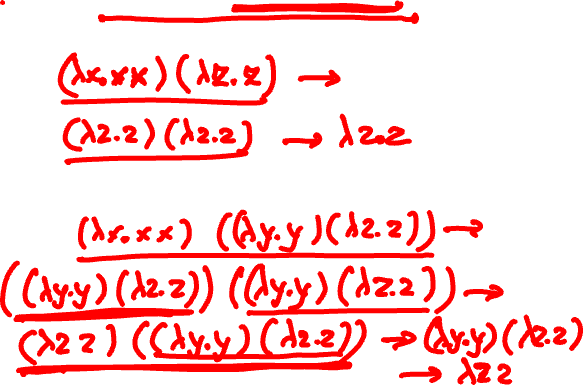 (λx.xx)(λz.z) →
(λz.z)(λz.z) → λz.z
(λx.xx) ((λy.y)(λz.z)) →
((λy.y)(λz.z)) ((λy.y)(λz.z)) →
(λz z) ((λy.y)(λz.z)) → (λy.y)(λz.z)
→ λz z